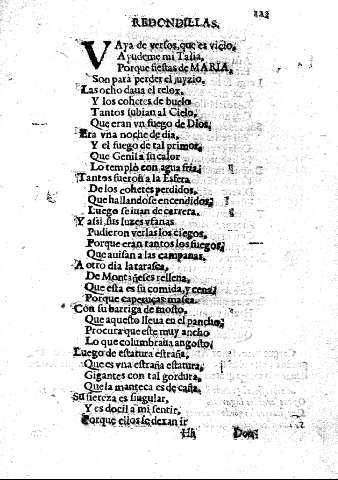 222
REDONDILLAS.
VAya de versos, que es vicio,
Ayudeme mi Talia,
Porque fiestas de MARIA,
Son para perder el juyzio.
Las ocho daua el relox,
Y los cohetes de buelo
Tantos subian al Cielo,
Que eran vn fuego de Dios,
Era vna noche de dia,
Y el fuego de tal primor,
Que Genil a su calor
Lo templò con agua fria,
Tantos fueron a la Esfera
De los cohetes perdidos,
Que hallandose encendidos,
Luego se iuan de carrera.
Y assi sus luzes vfanas
Pudieron verlas los ciegos,
Porque eran tantos los fuegos,
Que auisan a las campanas.
A otro dia la tarasca,
De Montañeses rellena,
Que esta es su comida, y cena,
Porque caperuças masca.
Con su barriga de mosto,
Que aquesto lleua en el pancho,
Procura que este muy ancho
Lo que columbraua angosto,
Luego de estatura estraña,
Que es vna estraña estatura,
Gigantes con tal gordura,
Que la manteca es de caña.
Su fiereza es singular,
Y es docil a mi sentir,
Porque ellos se dexan ir
Hh Don,